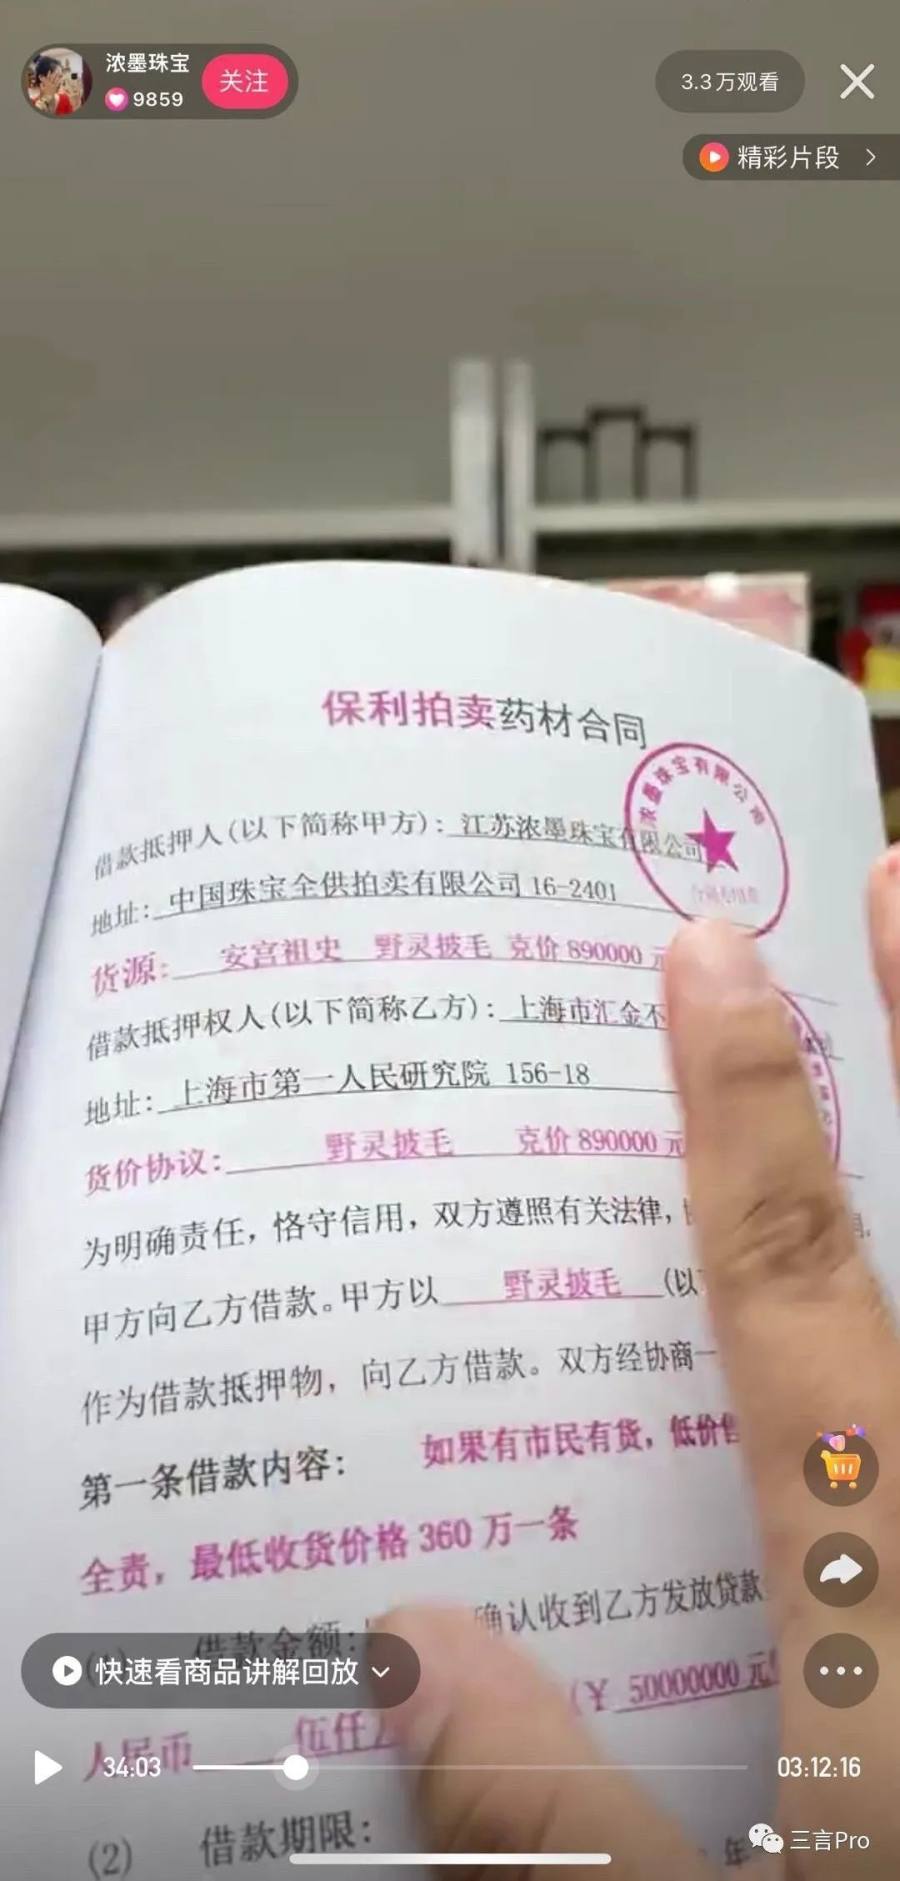 浓墨珠宝
9859
关注
3.3万观看
精彩片段
保利拍卖药材合同
浓墨珠宝有限公司
借款抵押人(以下简称甲方)：江苏浓墨珠宝有限公司
地址：中国珠宝全供拍卖有限公司 16-2401
货源：安宫祖史 野灵披毛 克价 890000 元
借款抵押权人(以下简称乙方)：上海市汇金不
地址：上海市第一人民研究院 156-18
货价协议：野灵披毛 克价 890000 元
为明确责任，恪守信用，双方遵照有关法律，
甲方向乙方借款。甲方以 野灵披毛 (以
作为借款抵押物，向乙方借款。双方经协商一
第一条借款内容： 如果有市民有货，低价售
全责，最低收货价格 360 万一条
借款金额： 确认收到乙方发放贷款
快速看商品讲解回放
(￥ 50000000 元
人民币 伍仟
34:03
03:12:16
(2) 借款期限： 年
三言Pro